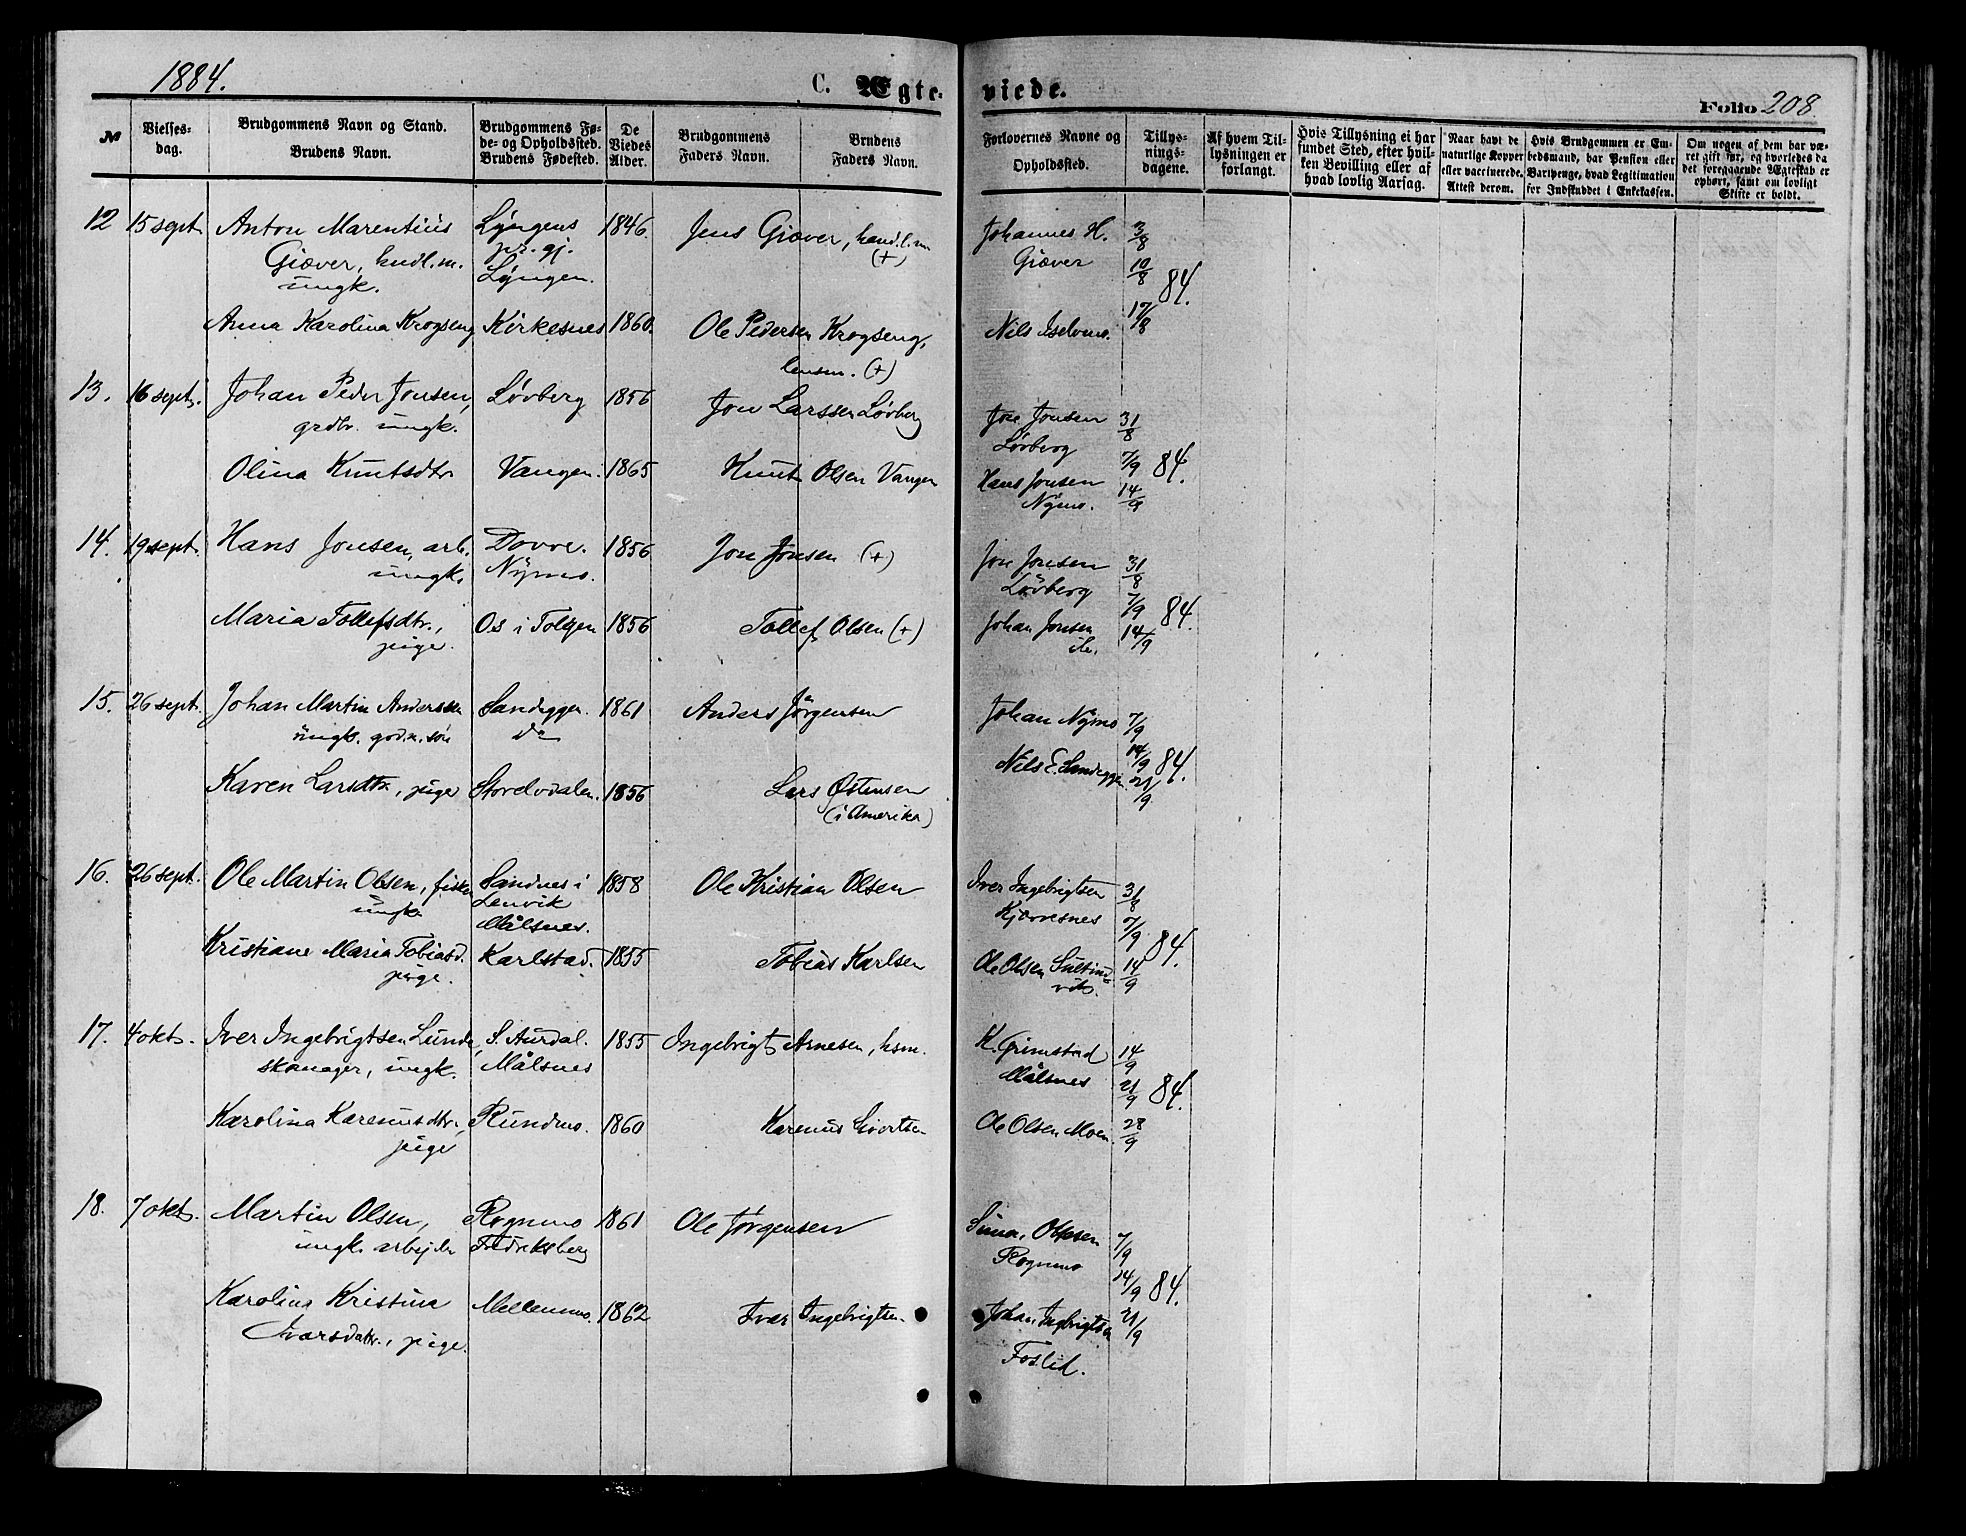 1884.
C. Ægte-
viede.
Folio 208.
№
Vielses-
dag.
Brudgommens Navn og Stand.
Brudens Navn.
Brudgommens Fø-
de- og Opholdssted.
Brudens Fødested.
De
Viedes
Alder.
Brudgommens
Faders Navn.
Brudens
Faders Navn.
Forlovernes Navne og
Opholdssted.
Tillys-
nings-
dagene.
Af hvem Til-
lysningen er
forlangt.
Hvis Tillysning ei har
fundet Sted, efter hvil-
ken Bevilling eller af
hvad lovlig Aarsag.
Naar havt de
naturlige Kopper
eller vaccinerede.
Attest derom.
Hvis Brudgommen er Em-
bedsmand, har Pension eller
Vartpenge, hvad Legitimation
for Indskuddet i Enkekassen.
Om nogen af dem har væ-
ret gift før, og hvorledes da
det foregaaende Ægteskab er
ophørt, samt om lovligt
Skifte er holdt.
12 15 sept. Anton Marentius Lyngens 1846. Jens Giæver, handl.m. Johannes H. 3/8
Giæver, hndl.m. pr. gj. (+) Giæver 10/8 84.
ungk. Lyngen.
Anna Karolina Krogseng Kirkesnes 1860. Ole Pedersen Krogseng, Nils Iselvmo. 17/8
lensm. (+)
13. 16 sept. Johan Peder Jonsen, Løvberg 1856 Jon Larssen Løvberg Jon Jonsen 31/8
grdbr. ungk. Løvberg
Olina Knutsdtr Vangen. 1865 Knut Olsen Vangen Hans Jonsen 7/9 84.
Nymo. 14/9
14. 19 sept. Hans Jonsen, arb. Dovre. 1856 Jon Jonsen (+) Jon Jonsen 31/8
ungk. Nymo. Løvberg 7/9 84.
Maria Tollefsdtr., Os i Tolgen 1856 Tollef Olsen (+) Johan Jonsen 14/9
pige. ib.
15. 26 sept. Johan Martin Anderssen Sandeggen 1861 Anders Jørgensen Johan Nymo 7/9
ungk. gdm. søn do 14/9 84.
Karen Larsdtr., pige Stordvdalen. 1856 Lars Østensen Nils E. Sandeggen 21/9
(i Amerika)
16. 26 sept. Ole Martin Olsen, fisker Sandnes i 1858 Ole Kristian Olsen Iver Ingebrigtsen 31/8
ungk. Lenvik Kjærresnes 7/9 84.
Målsnes.
Kristiane Maria Tobiasd. Karlstad. 1855 Tobias Karlsen Ole Olsen 14/9
pige.
17. 4 okt. Iver Ingebrigtsen Lunde, S. Aurdal. 1855 Ingebrigt Arnesen, hsm. K. Grimstad 14/9
skomager, ungk. Målsnes Målsnes 21/9 84.
Karolina Karenusdtr., Rundmo. 1860 Karenus Sivertsen Ole Olsen Moen. 28/9
pige
18. 7 okt. Martin Olsen, Rognmo 1861 Ole Jørgensen Simon Olsen 7/9
ungk. arbejder Fredriksberg Rognmo 14/9 84.
Karolina Kristina Mellemmo. 1862 Ivar Ingebrigtsen. Johan Ingebrigtsen 21/9
Ivarsdatr., pige. Foslid.